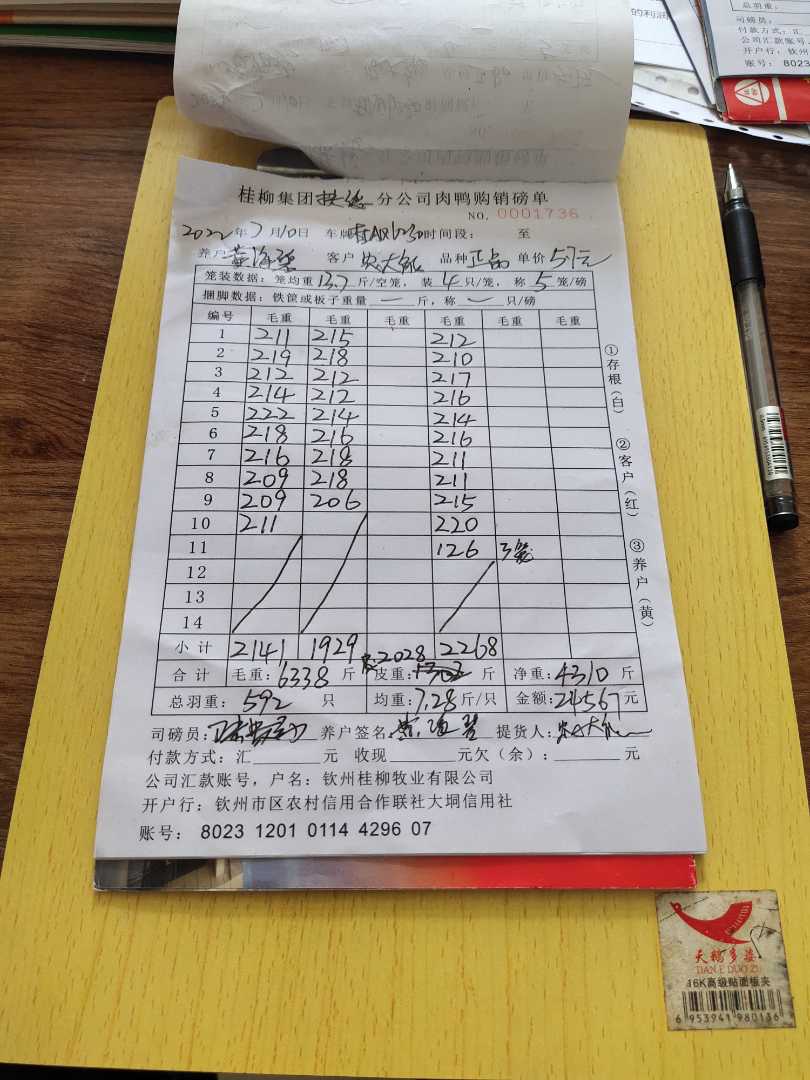 的利润
总羽重：
司磅员：
付款方式：汇
公司汇款账号，
开户行：钦州
账号： 8023
桂柳集团扶绥分公司肉鸭购销磅单
NO. 0001736
2022年7月10日 车牌 时间段： 至
养户 黄海 客户 大 品种 正品 单价 5.7元
笼装数据：笼均重 13.7 斤/空笼，装 4 只/笼，称 5 笼/磅
捆脚数据：铁筐或板子重量 — 斤，称 — 只/磅
编号 毛重 毛重 毛重 毛重 毛重 毛重
1 211 215 212
2 219 218 210
3 212 212 217
4 214 212 216
5 222 214 214
6 218 216 216
7 216 218 211
8 209 218 211
9 209 206 215
10 211 220
11 126 3笼
12
13
14
小计 2141 1929 2268
合计 毛重：6338 斤 皮重： 皮2028 斤 净重：4310 斤
总羽重： 592 只 均重：7.28 斤/只 金额：24567 元
司磅员： 养户签名： 黄海 提货人： 大
付款方式：汇 元 收现 元欠（余）： 元
公司汇款账号，户名：钦州桂柳牧业有限公司
开户行：钦州市区农村信用合作联社大垌信用社
账号： 8023 1201 0114 4296 07
①存根（白）
②客户（红）
③养户（黄）
天鹅多姿
TIAN E DUO ZI
16K高级贴面板夹
6 953941 980136